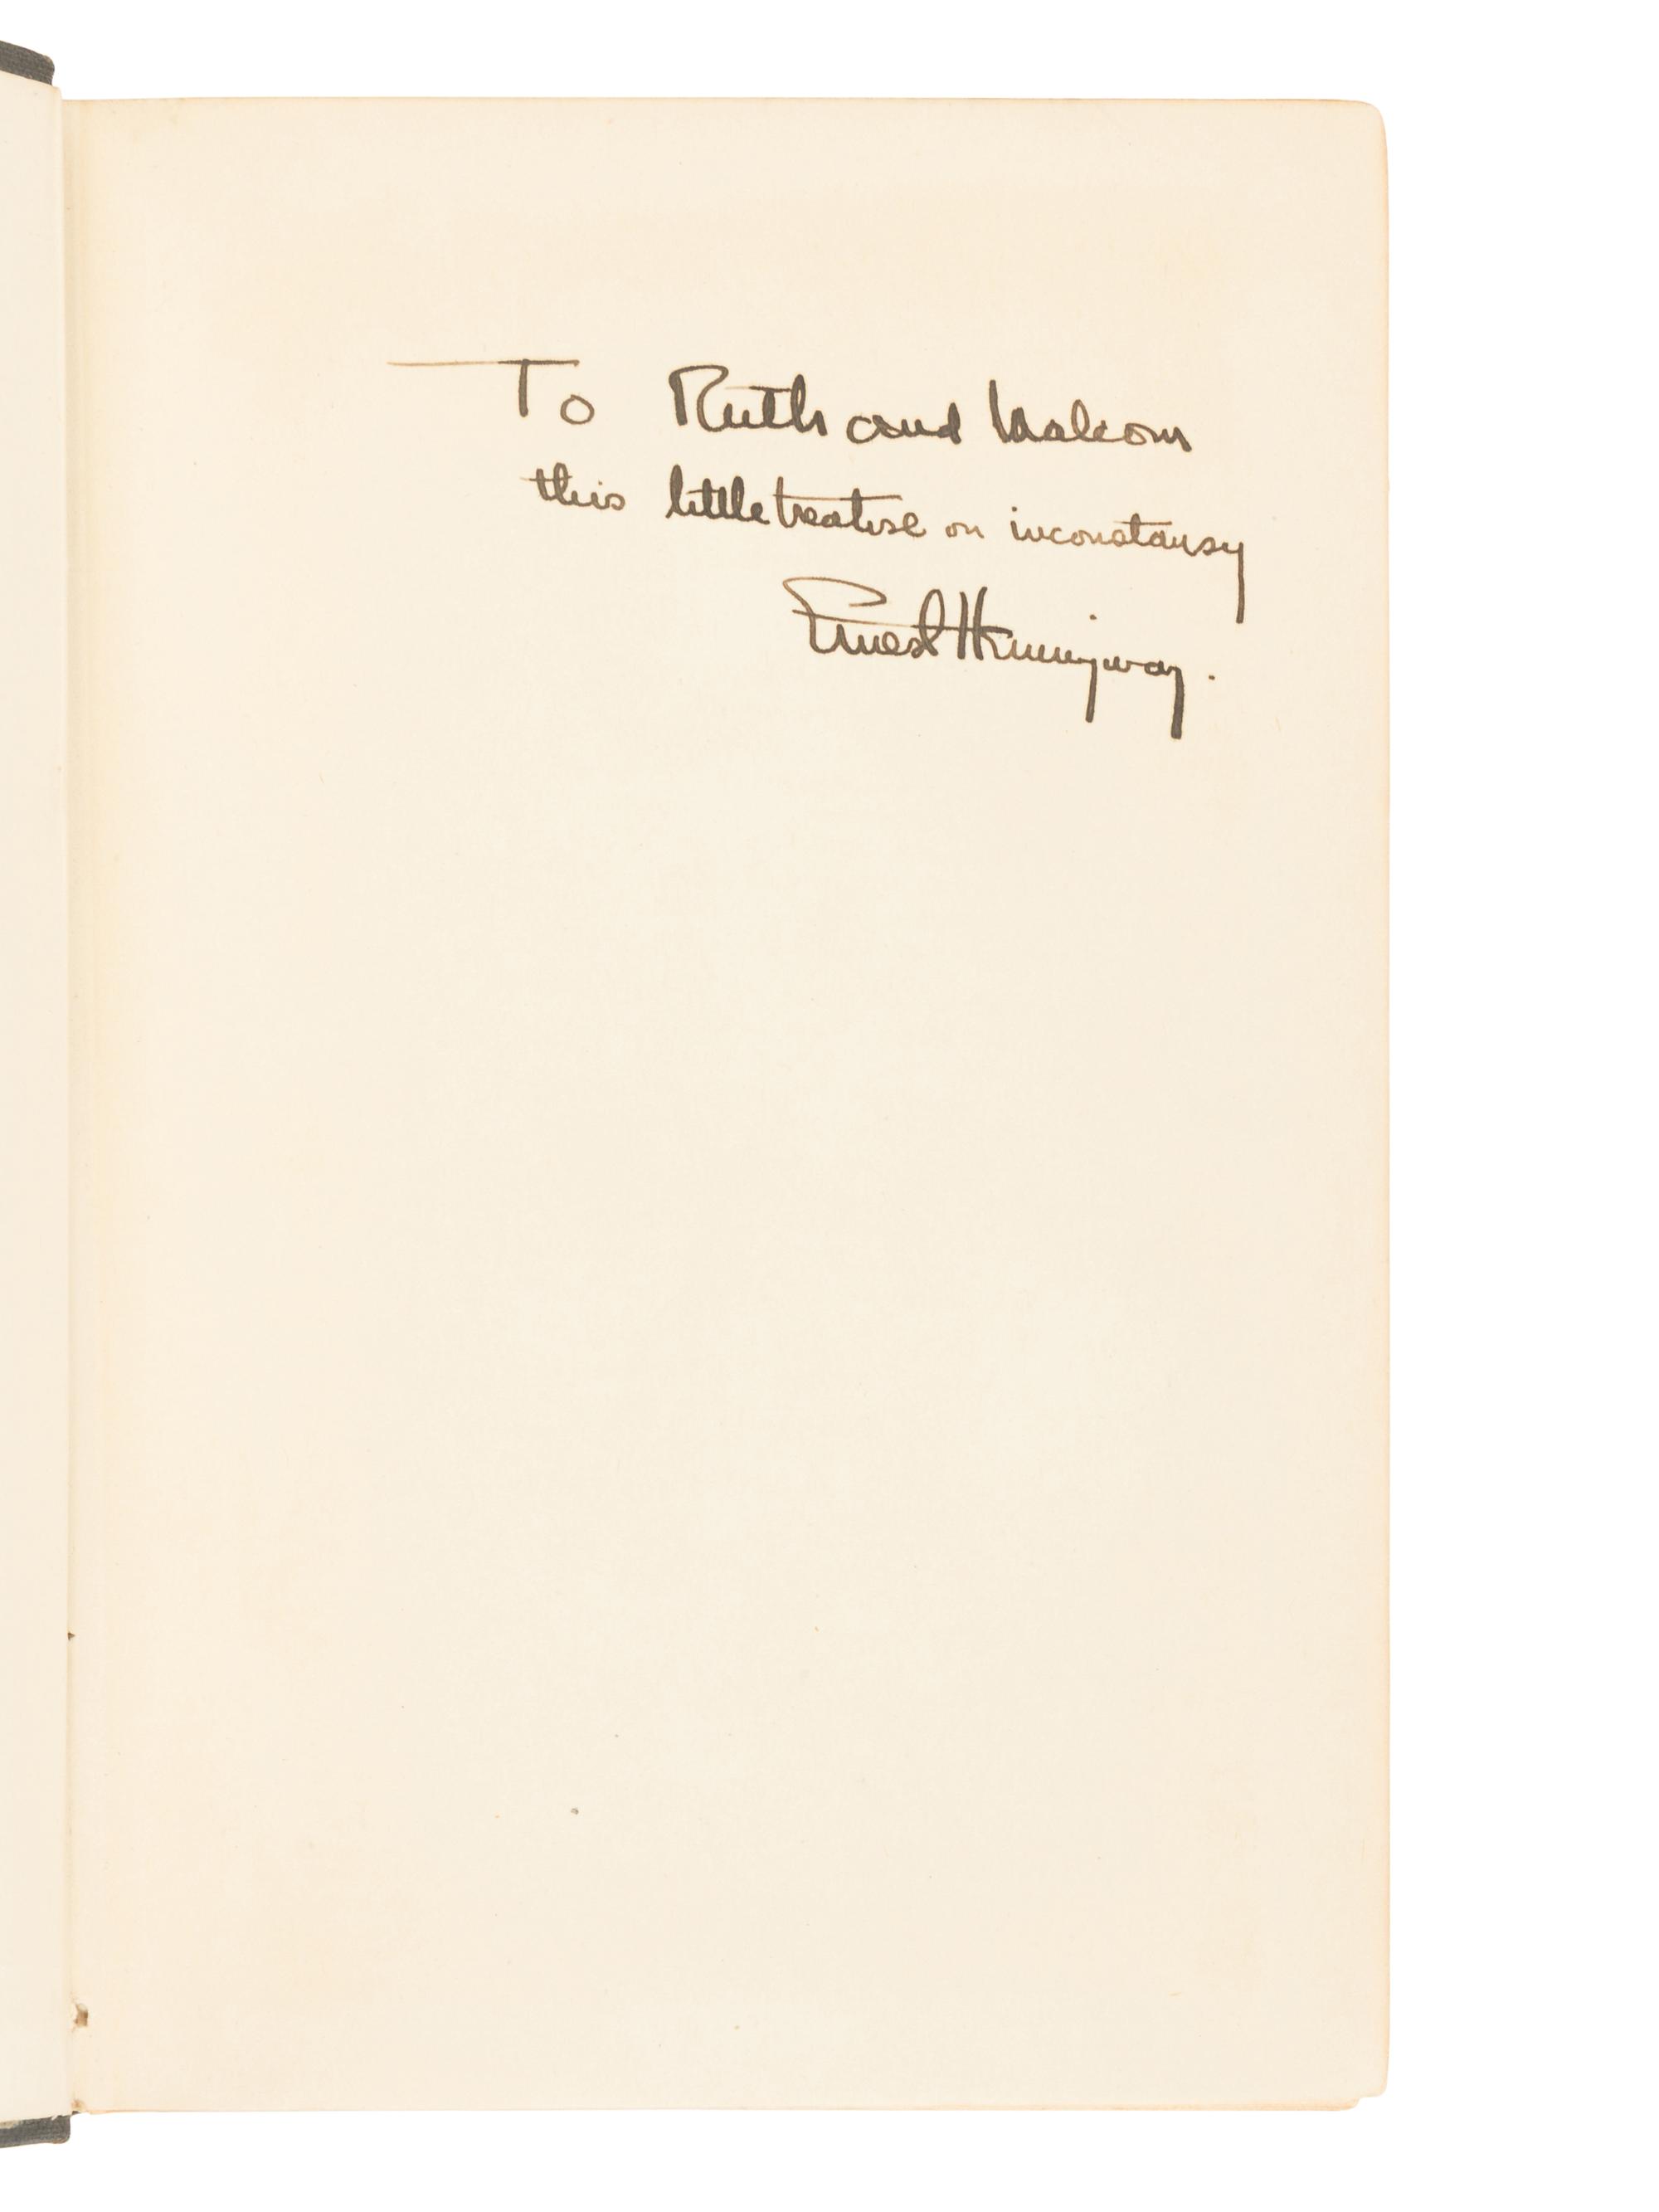 To Ruth and Malcom
this little treatise on inconstansy
Ernest Hemingway.